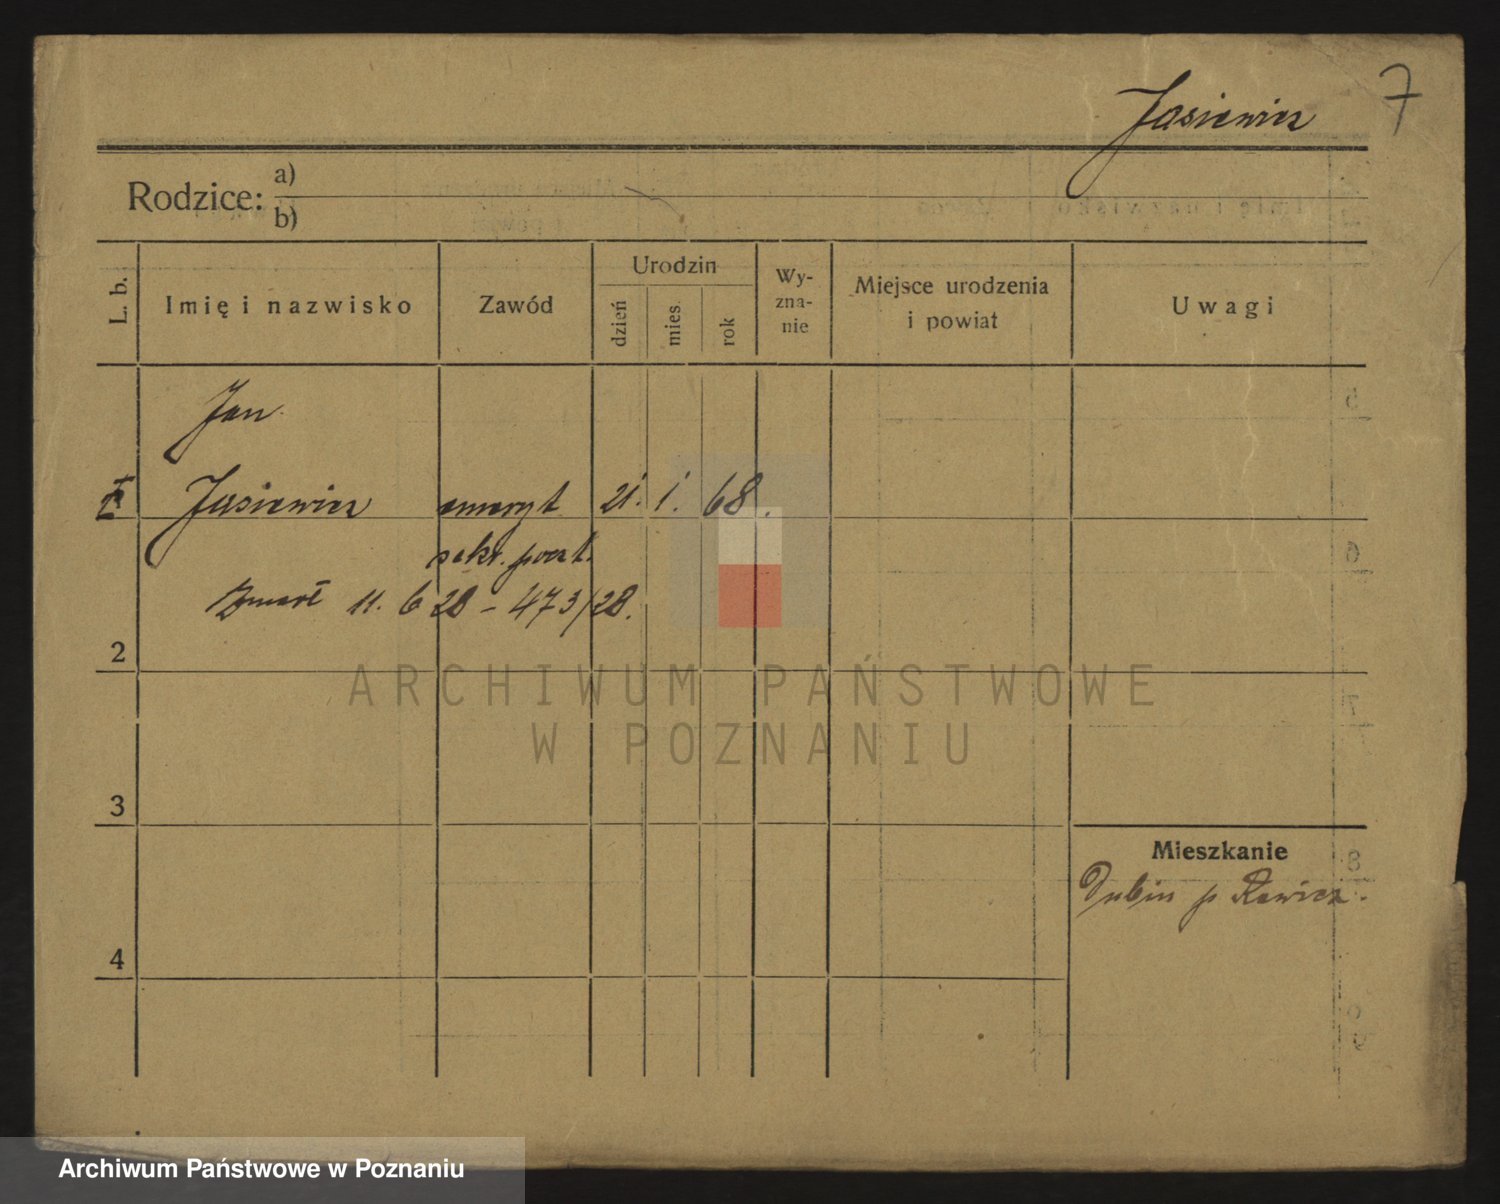 Jasiewicz 7
Rodzice: a)
b)
L. b. Imię i nazwisko Zawód Urodzin dzień mies. rok Wy-zna-nie Miejsce urodzenia i powiat Uwagi
Jan
Jasiewicz emeryt 21. 1. 68.
sekr. poczt.
Zmarł 11. 6 28 – 473/28.
2
ARCHIWUM PAŃSTWOWE
W POZNANIU
3
Mieszkanie
Dubin p Rawicz.
4
Archiwum Państwowe w Poznaniu